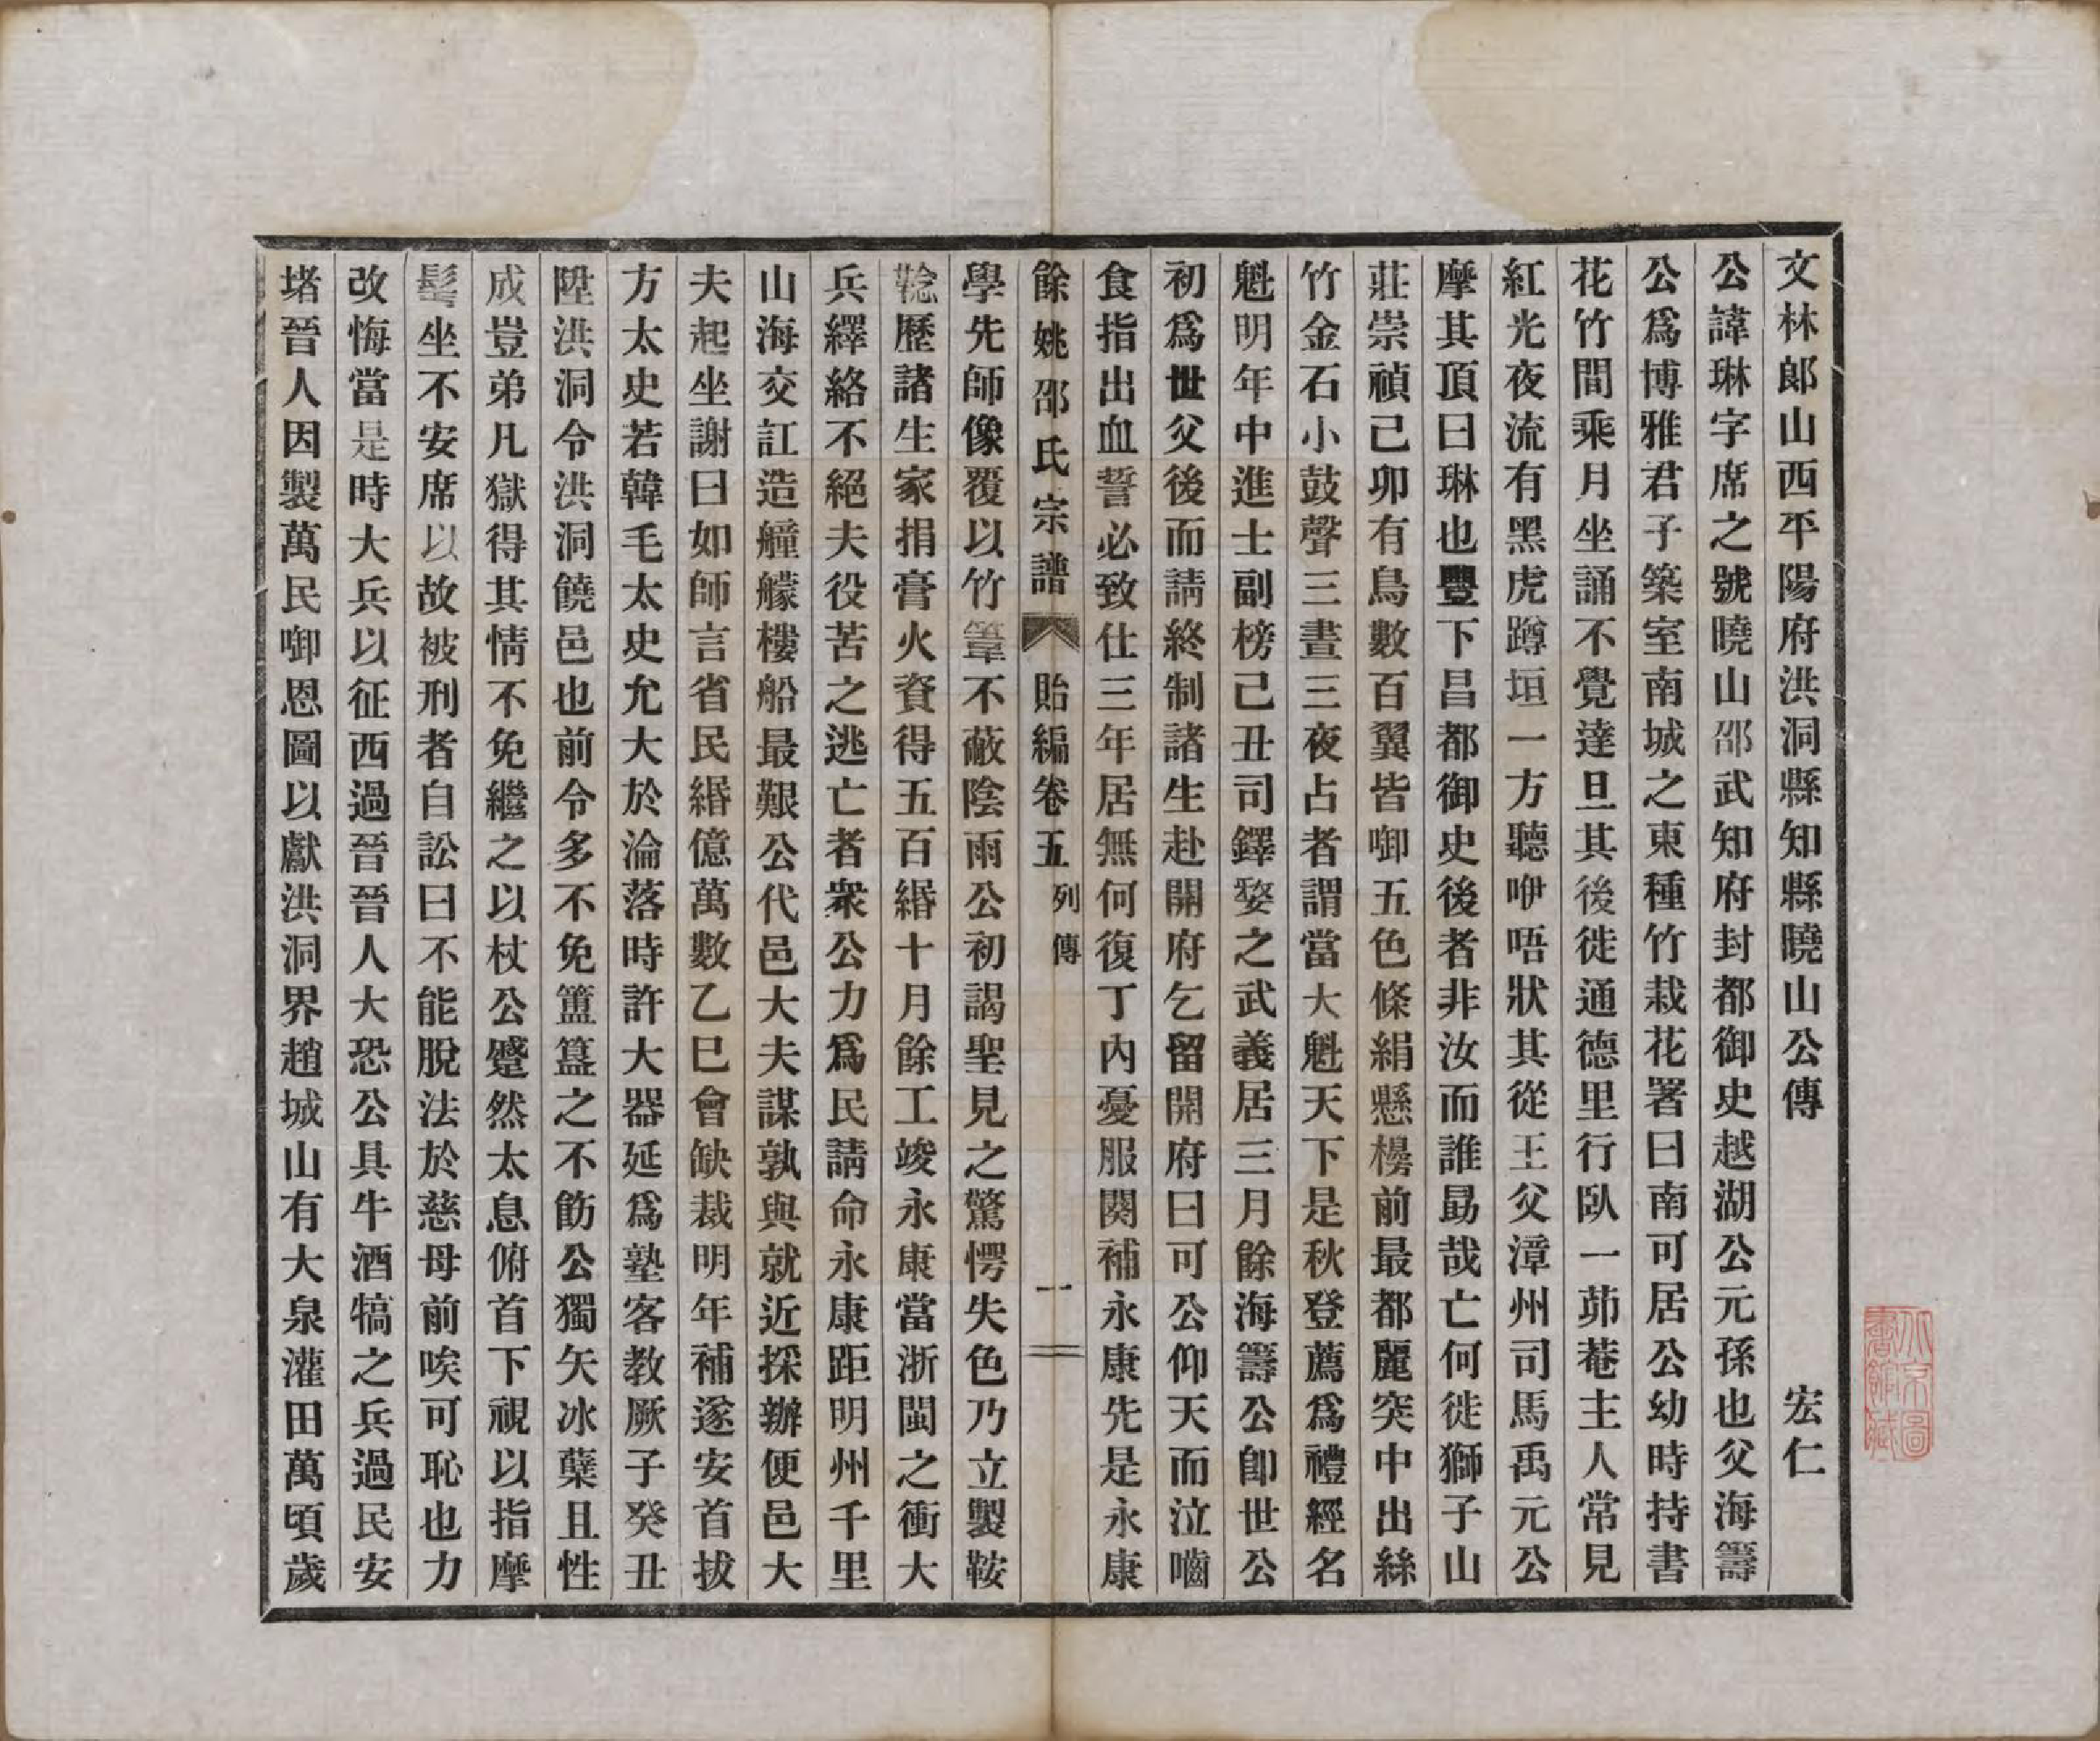 文林郞山西平陽府洪洞縣知縣曉山公傳　宏仁
公諱琳字席之號曉山邵武知府封都御史越湖公元孫也父海籌
公爲博雅君子築室南城之東種竹栽花署曰南可居公幼時持書
花竹間乘月坐誦不覺達旦其後徙通德里行臥一茆菴主人常見
紅光夜流有黑虎蹲垣一方聽咿唔狀其從王父漳州司馬禹元公
摩其頂曰琳也豐下昌都御史後者非汝而誰勗哉亡何徙獅子山
莊崇禎己卯有鳥數百翼皆啣五色條絹懸櫋前最都麗突中出絲
竹金石小鼓聲三晝三夜占者謂當大魁天下是秋登薦爲禮經名
魁明年中進士副榜己丑司鐸婺之武義居三月餘海籌公卽世公
初爲世父後而請終制諸生赴開府乞留開府曰可公仰天而泣嚙
食指出血誓必致仕三年居無何復丁內憂服闋補永康先是永康
餘姚邵氏宗譜　貽編卷五　列傳　一
學先師像覆以竹篳不蔽陰雨公初謁聖見之驚愕失色乃立製鞍
鞈歷諸生家捐膏火資得五百緡十月餘工竣永康當浙閩之衝大
兵繹絡不絕夫役苦之逃亡者衆公力爲民請命永康距明州千里
山海交訌造艟艨樓船最艱公代邑大夫謀孰與就近採辦便邑大
夫起坐謝曰如師言省民緡億萬數乙巳會缺裁明年補遂安首拔
方太史若韓毛太史允大於淪落時許大器延爲塾客教厥子癸丑
陞洪洞令洪洞饒邑也前令多不免簠簋之不飭公獨矢冰蘗且性
成豈弟凡獄得其情不免繼之以杖公蹙然太息俯首下視以指摩
髩坐不安席以故被刑者自訟曰不能脫法於慈母前唉可恥也力
改悔當是時大兵以征西過晉晉人大恐公具牛酒犒之兵過民安
堵晉人因製萬民啣恩圖以獻洪洞界趙城山有大泉灌田萬頃歲